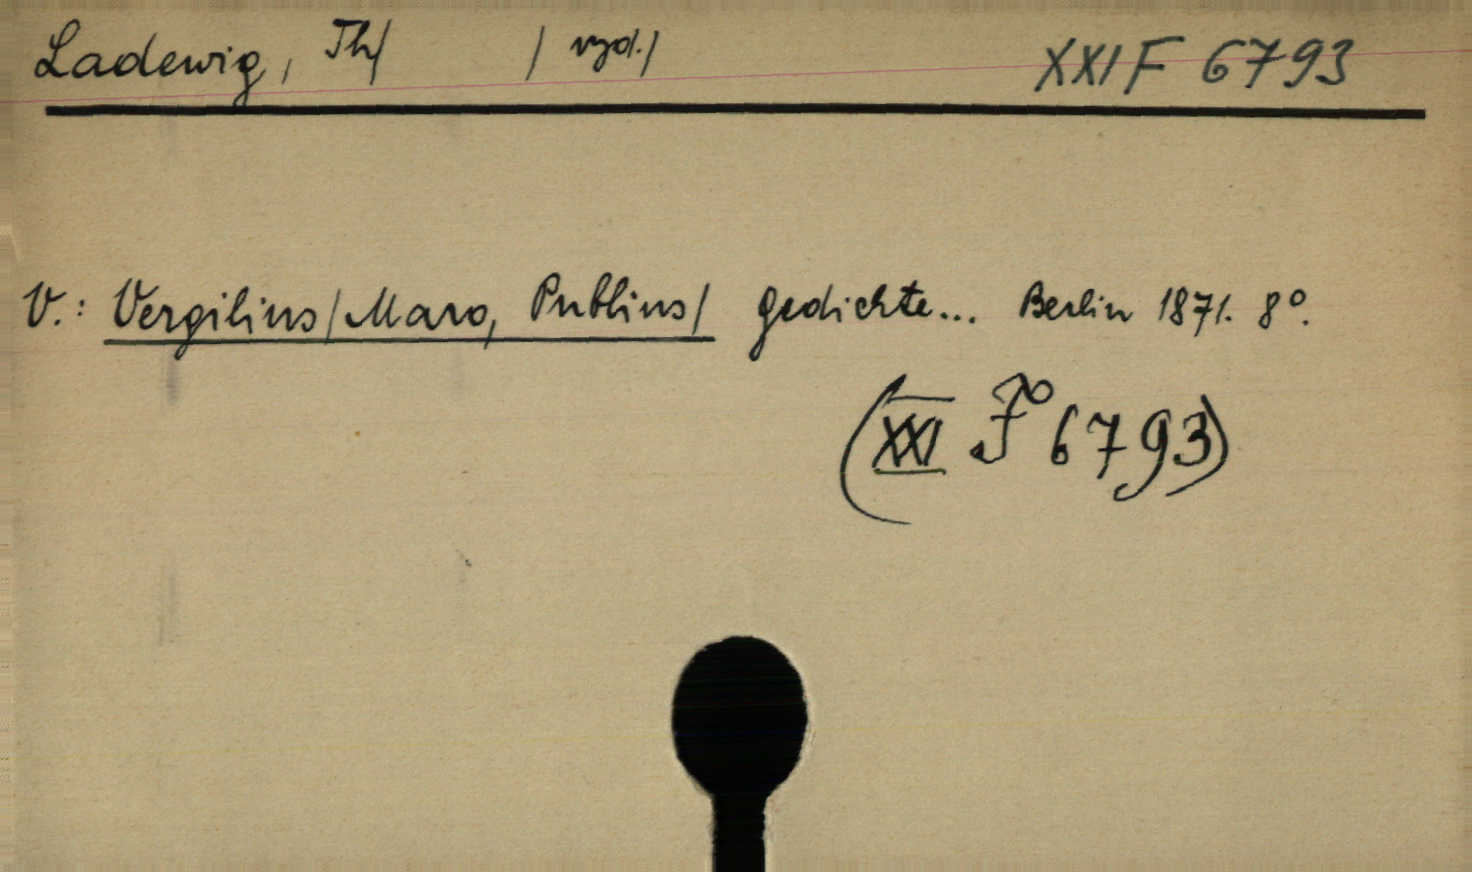 Ladewig, Th/ / vyd./ XXI F 6793
V.: Vergilius/Maro, Publius/ Gedichte... Berlin 1871. 8°.
(XXI F° 6793)